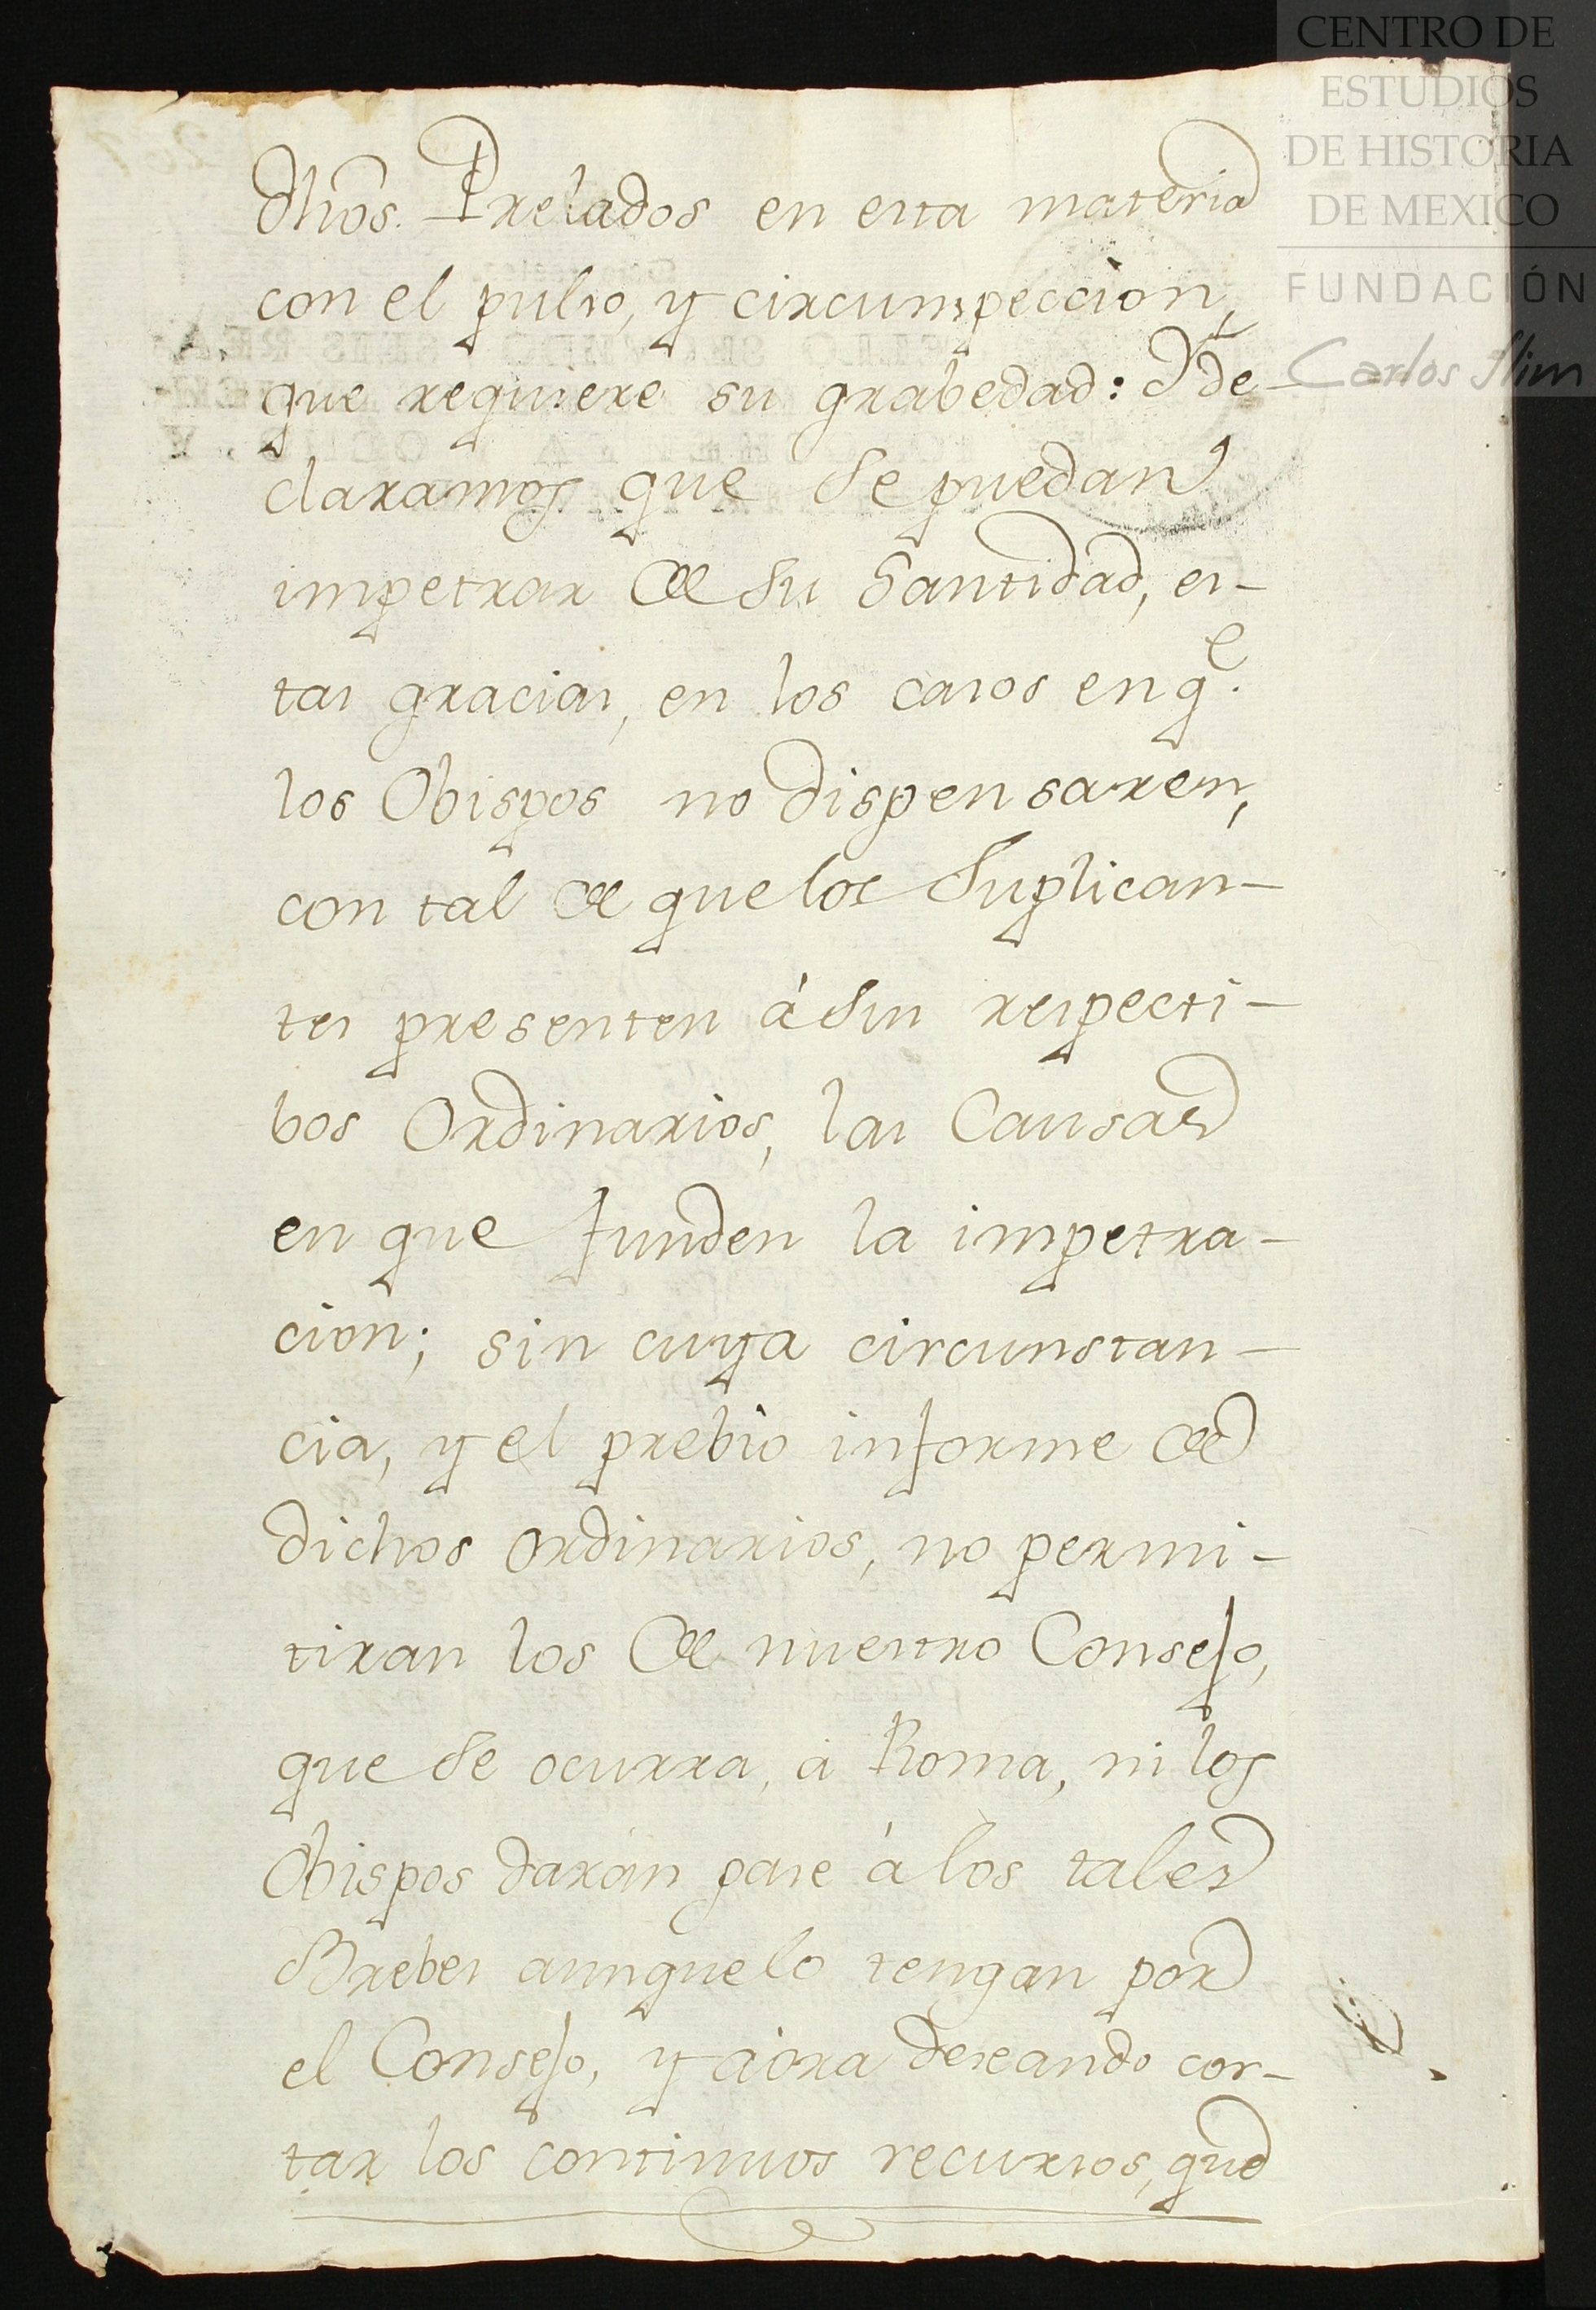 CENTRO DE
ESTUDIOS
DE HISTORIA
DE MEXICO
FUNDACIÓN
Carlos Slim
dhõs. Prelados en esta materia
con el pulso, y circumspeccion,
que requiere su grabedad: Y de-
claramos que se puedan
impetrar de su Santidad, es-
tas gracias, en los casos en q.e
los Obispos no dispensaren,
con tal de que los Suplican-
tes presenten à sus respecti-
bos Ordinarios, las Causas
en que funden la impetra-
cion; sin cuya circunstan-
cia, y el prebio informe de
dichos ordinarios, no permi-
tiran los de nuestro Consejo,
que se ocurra, à Roma, ni los
Obispos daràn pase à los tales
Brebes aunque lo tengan por
el Consejo, y aora deseando cor-
tar los continuos recursos, que